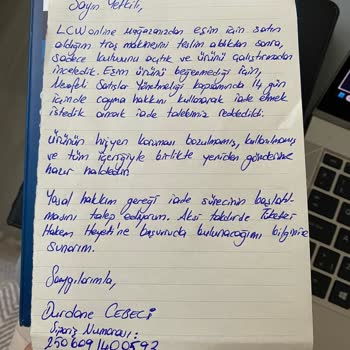 Sayın Yetkili,
LCW online mağazanızdan eşim için satın
aldığım traş makinesini teslim aldıktan sonra,
sadece kutusunu açtık ve ürünü çalıştırmadan
inceledik. Eşim ürünü beğenmediği için,
Mesafeli Satışlar Yönetmeliği kapsamında 14 gün
içinde cayma hakkını kullanarak iade etmek
istedik ancak iade talebimiz reddedildi.
Ürünün hijyen koruması bozulmamış, kullanılmamış
ve tüm içeriğiyle birlikte yeniden gönderime
hazır haldedir.
Yasal hakkım gereği iade sürecinin başlatıl-
masını talep ediyorum. Aksi takdirde Tüketici
Hakem Heyeti'ne başvuruda bulunacağımı bilginize
sunarım.
Saygılarımla,
Durdane CEBECİ
Sipariş Numarası: